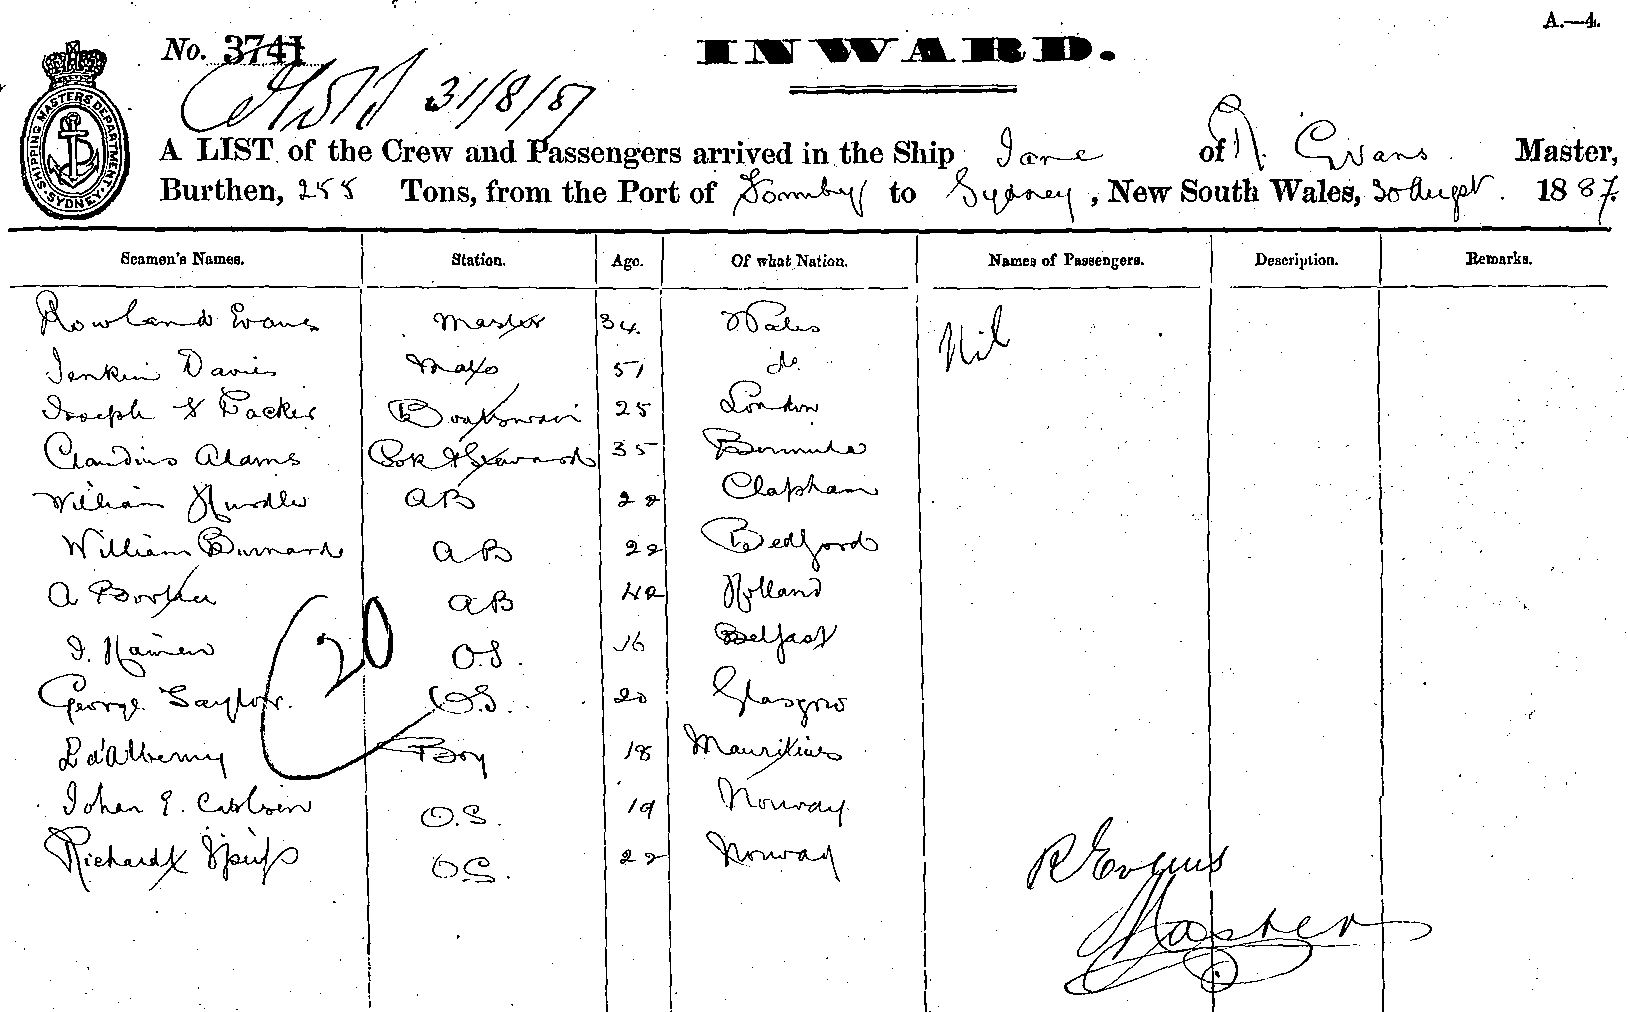 A.—4.
No. 3741
INWARD.
31/8/87
SHIPPING MASTERS DEPARTMENT SYDNEY
A LIST of the Crew and Passengers arrived in the Ship Jane of R. Evans Master,
Burthen, 255 Tons, from the Port of to Sydney, New South Wales, 30 August. 1887.
Seamen's Names. Station. Age. Of what Nation. Names of Passengers. Description. Remarks.
Rowland Evans Master 34 Wales Nil
Jenkin Davies Mate 51 do
Joseph Packer Boatswain 25 London
Claudius Adams Cook & Steward 35 Bermuda
William Hurdle AB 22 Clapham
William Burnard AB 22 Bedford
A AB 42 Holland
J. O.S. 16 Belfast
20
George Taylor. O.S. 20 Glasgow
Boy 18 Mauritius
Johan E. O.S. 19 Norway
Richard O.S. 22 Norway
R Evans
Master